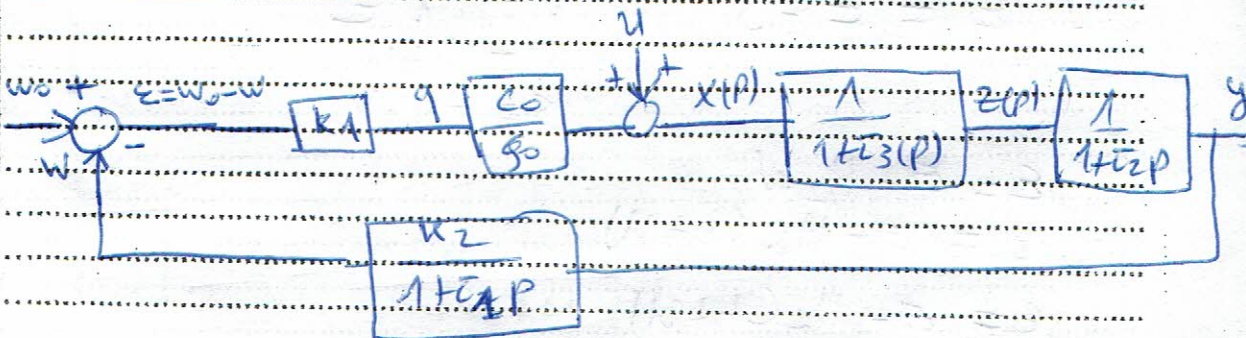 u
w₀ + ε=w₀-w K1 q C₀/g₀ + + X(P) 1/(1+τ₃(P)) Z(P) 1/(1+τ₂P) y
w -
K₂/(1+τ₁P)